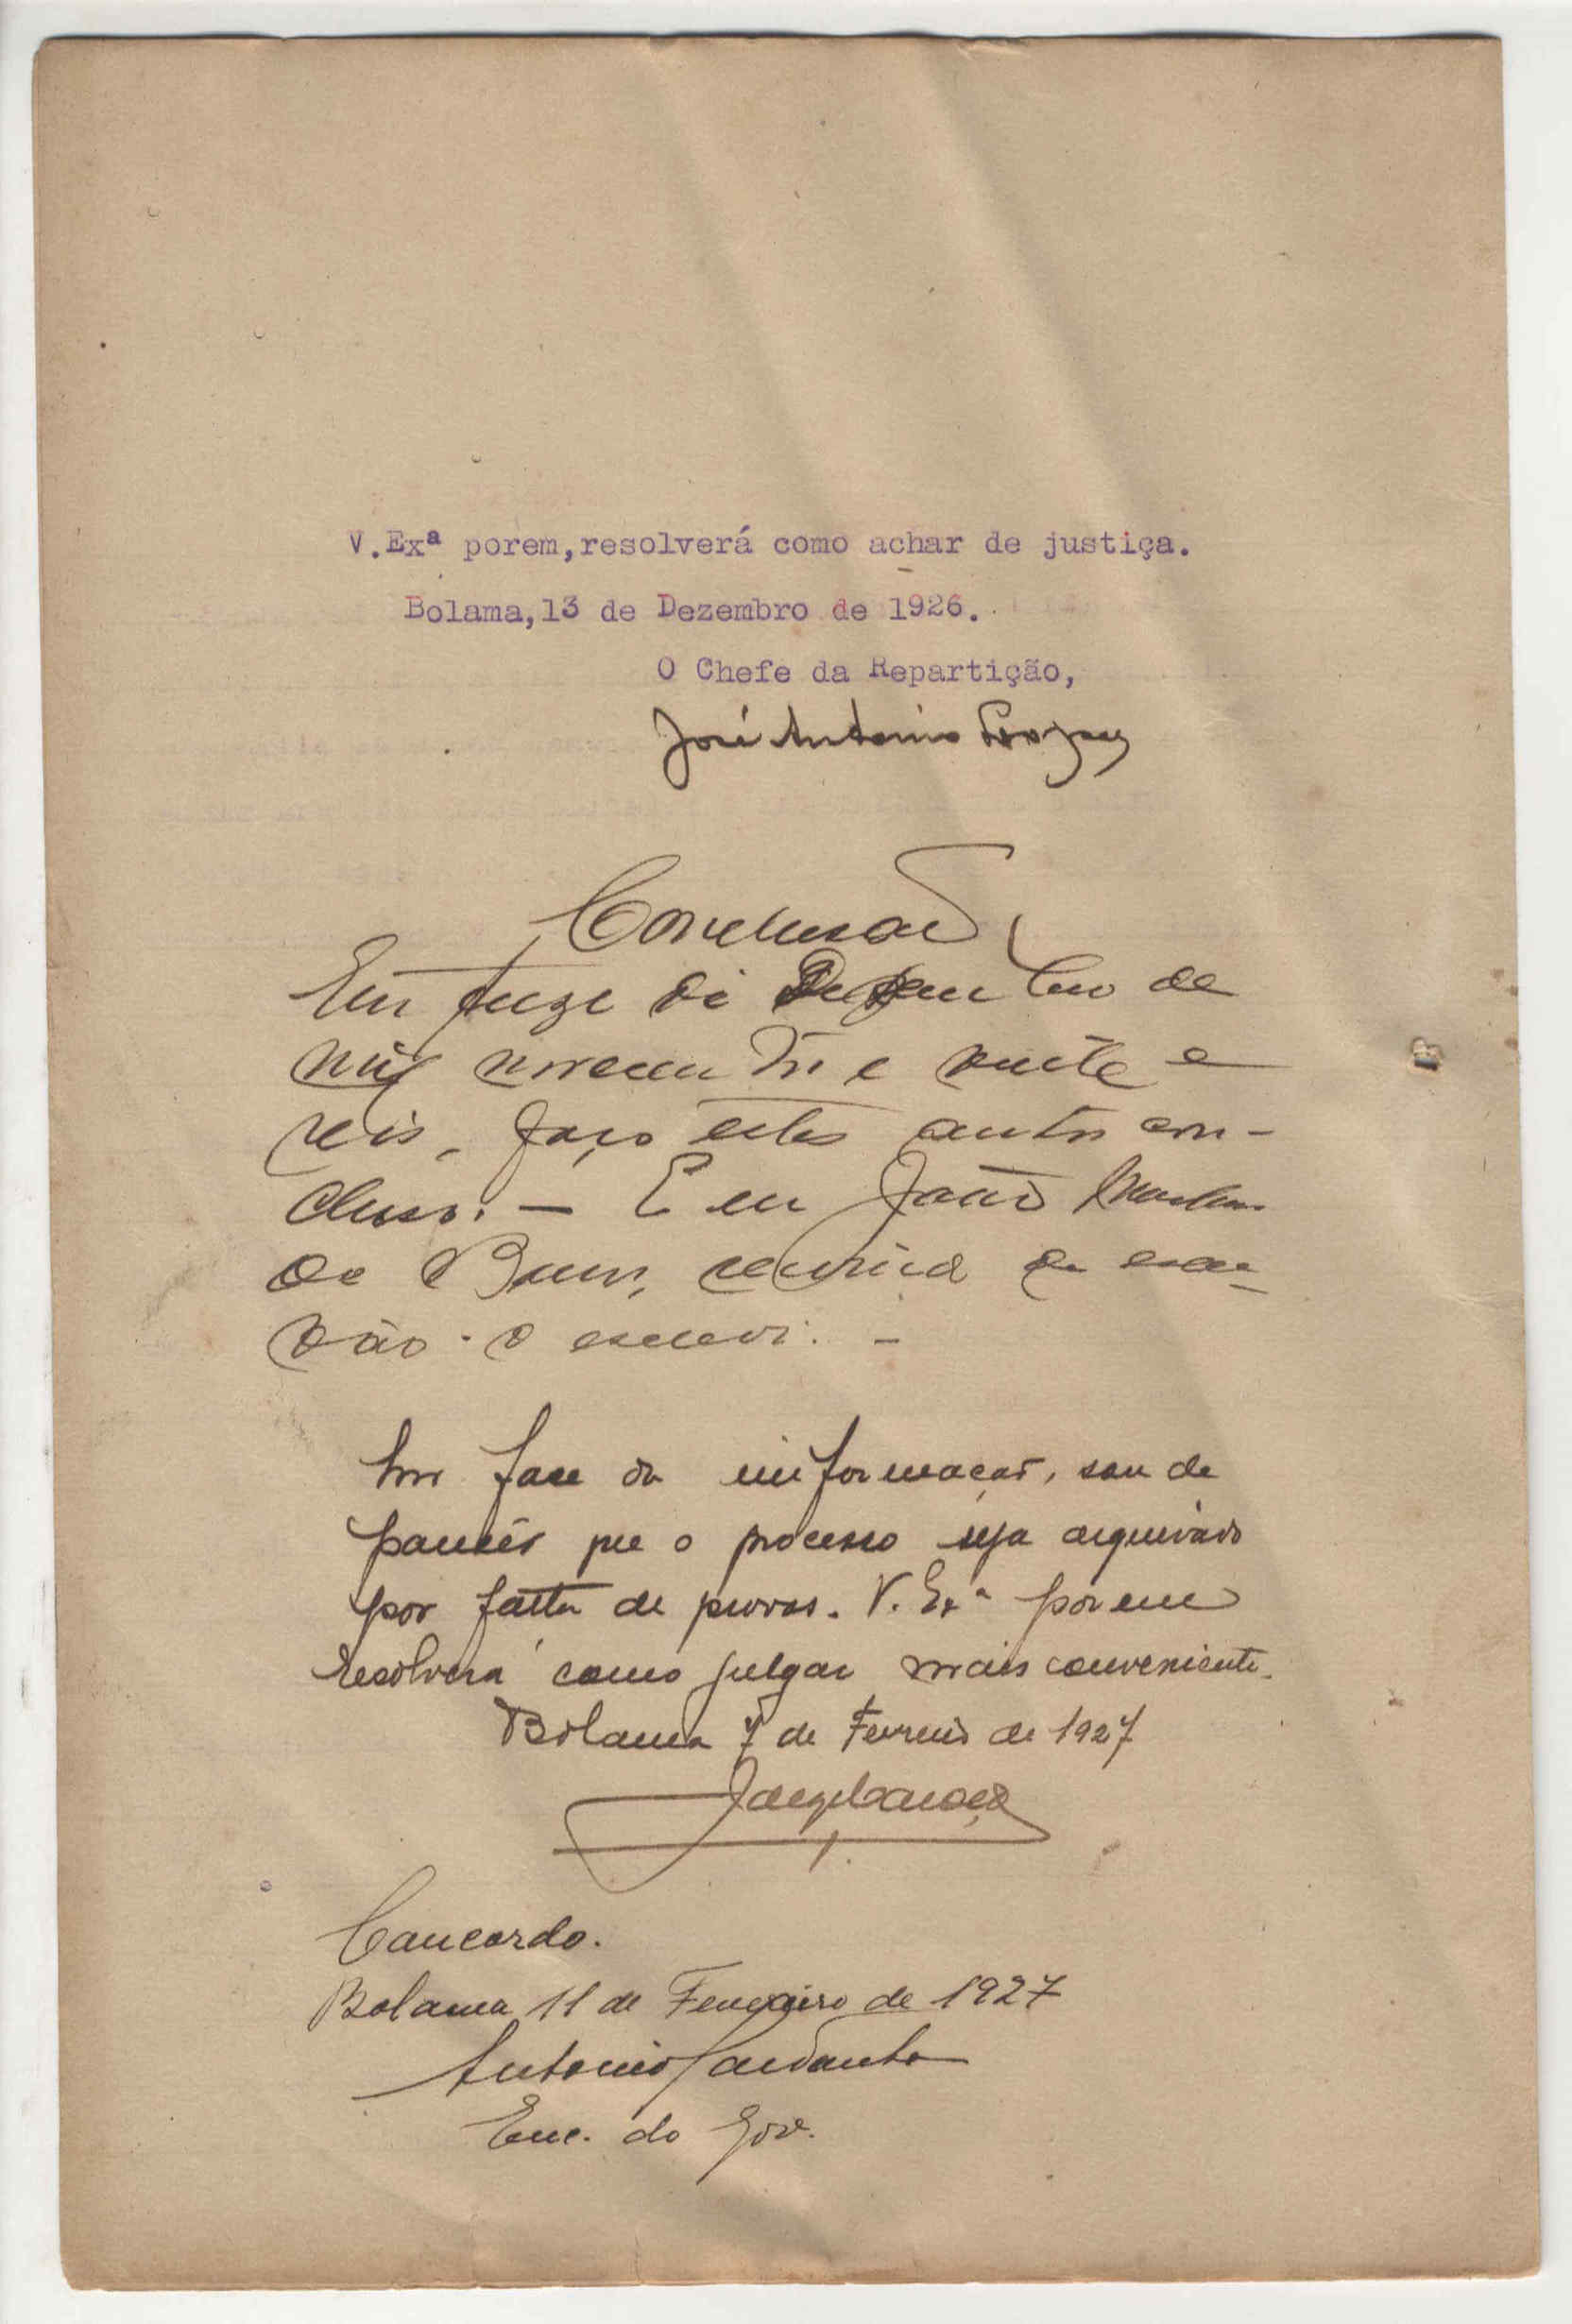 V.Exª porem,resolverá como achar de justiça.
Bolama,13 de Dezembro de 1926.
O Chefe da Repartição,
José Antonio
Conclusão
Em treze de Dezembro de
mil novecentos e vinte e
seis, faço estes autos con-
clusos. — E eu João
de Barros, servindo de escri-
vão o escrevi. —
Em face da informação, sou de
parecer que o processo seja arquivado
por falta de provas. V. Exª porem
resolverá como julgar mais conveniente.
Bolama 7 de Fevereiro de 1927
Concordo.
Bolama 11 de Fevereiro de 1927
Antonio
Enc. do Gov.